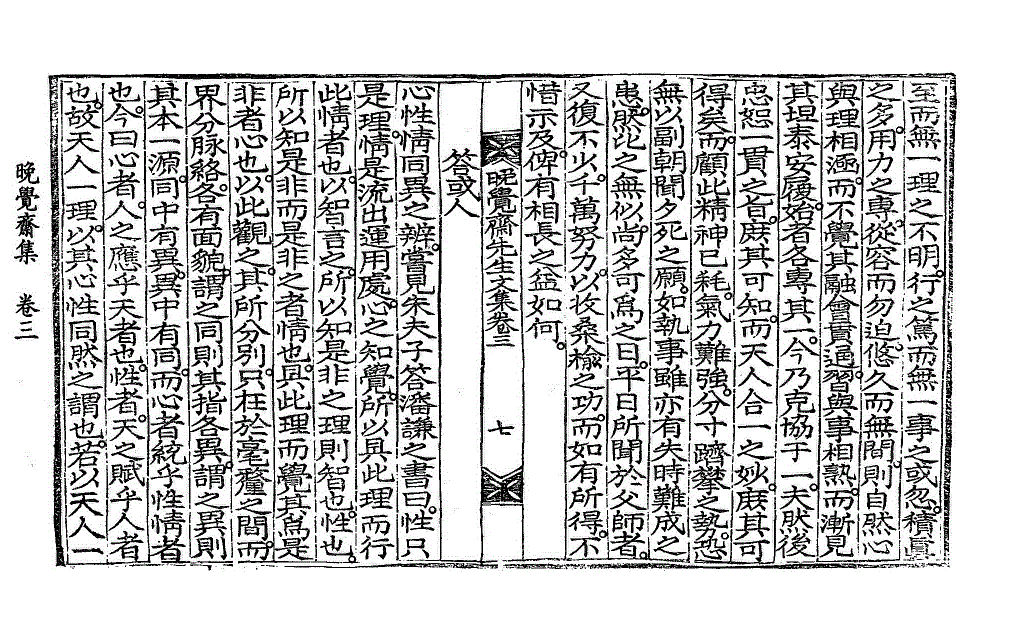 至而無一理之不明行之篤而無一事之或忽積眞
之多用力之專從容而勿迫悠久而無間則自然心
與理相涵而不覺其融會貫通習與事相熟而漸見
其坦泰安履始者各專其一今乃克協于一夫然後
忠恕一貫之旨庶其可知而天人合一之妙庶其可
得矣而顧此精神已耗氣力難強分寸躋攀之勢恐
無以副朝聞夕死之願如執事雖亦有失時難成之
患然比之無似尙多可爲之日平日所聞於父師者
又復不少千萬努力以收桑楡之功而如有所得不
惜示及俾有相長之益如何
晩覺齋先生文集卷三
七
答或人
心性情同異之辨嘗見朱夫子答潘謙之書曰性只
是理情是流出運用處心之知覺所以具此理而行
此情者也以智言之所以知是非之理則智也性也
所以知是非而是非之者情也具此理而覺其爲是
非者心也以此觀之其所分別只在於毫釐之間而
界分脉絡各有面貌謂之同則其指各異謂之異則
其本一源同中有異異中有同而心者統乎性情者
也今曰心者人之應乎天者也性者天之賦乎人者
也故天人一理以其心性同然之謂也若以天人一
晩覺齋集 卷三